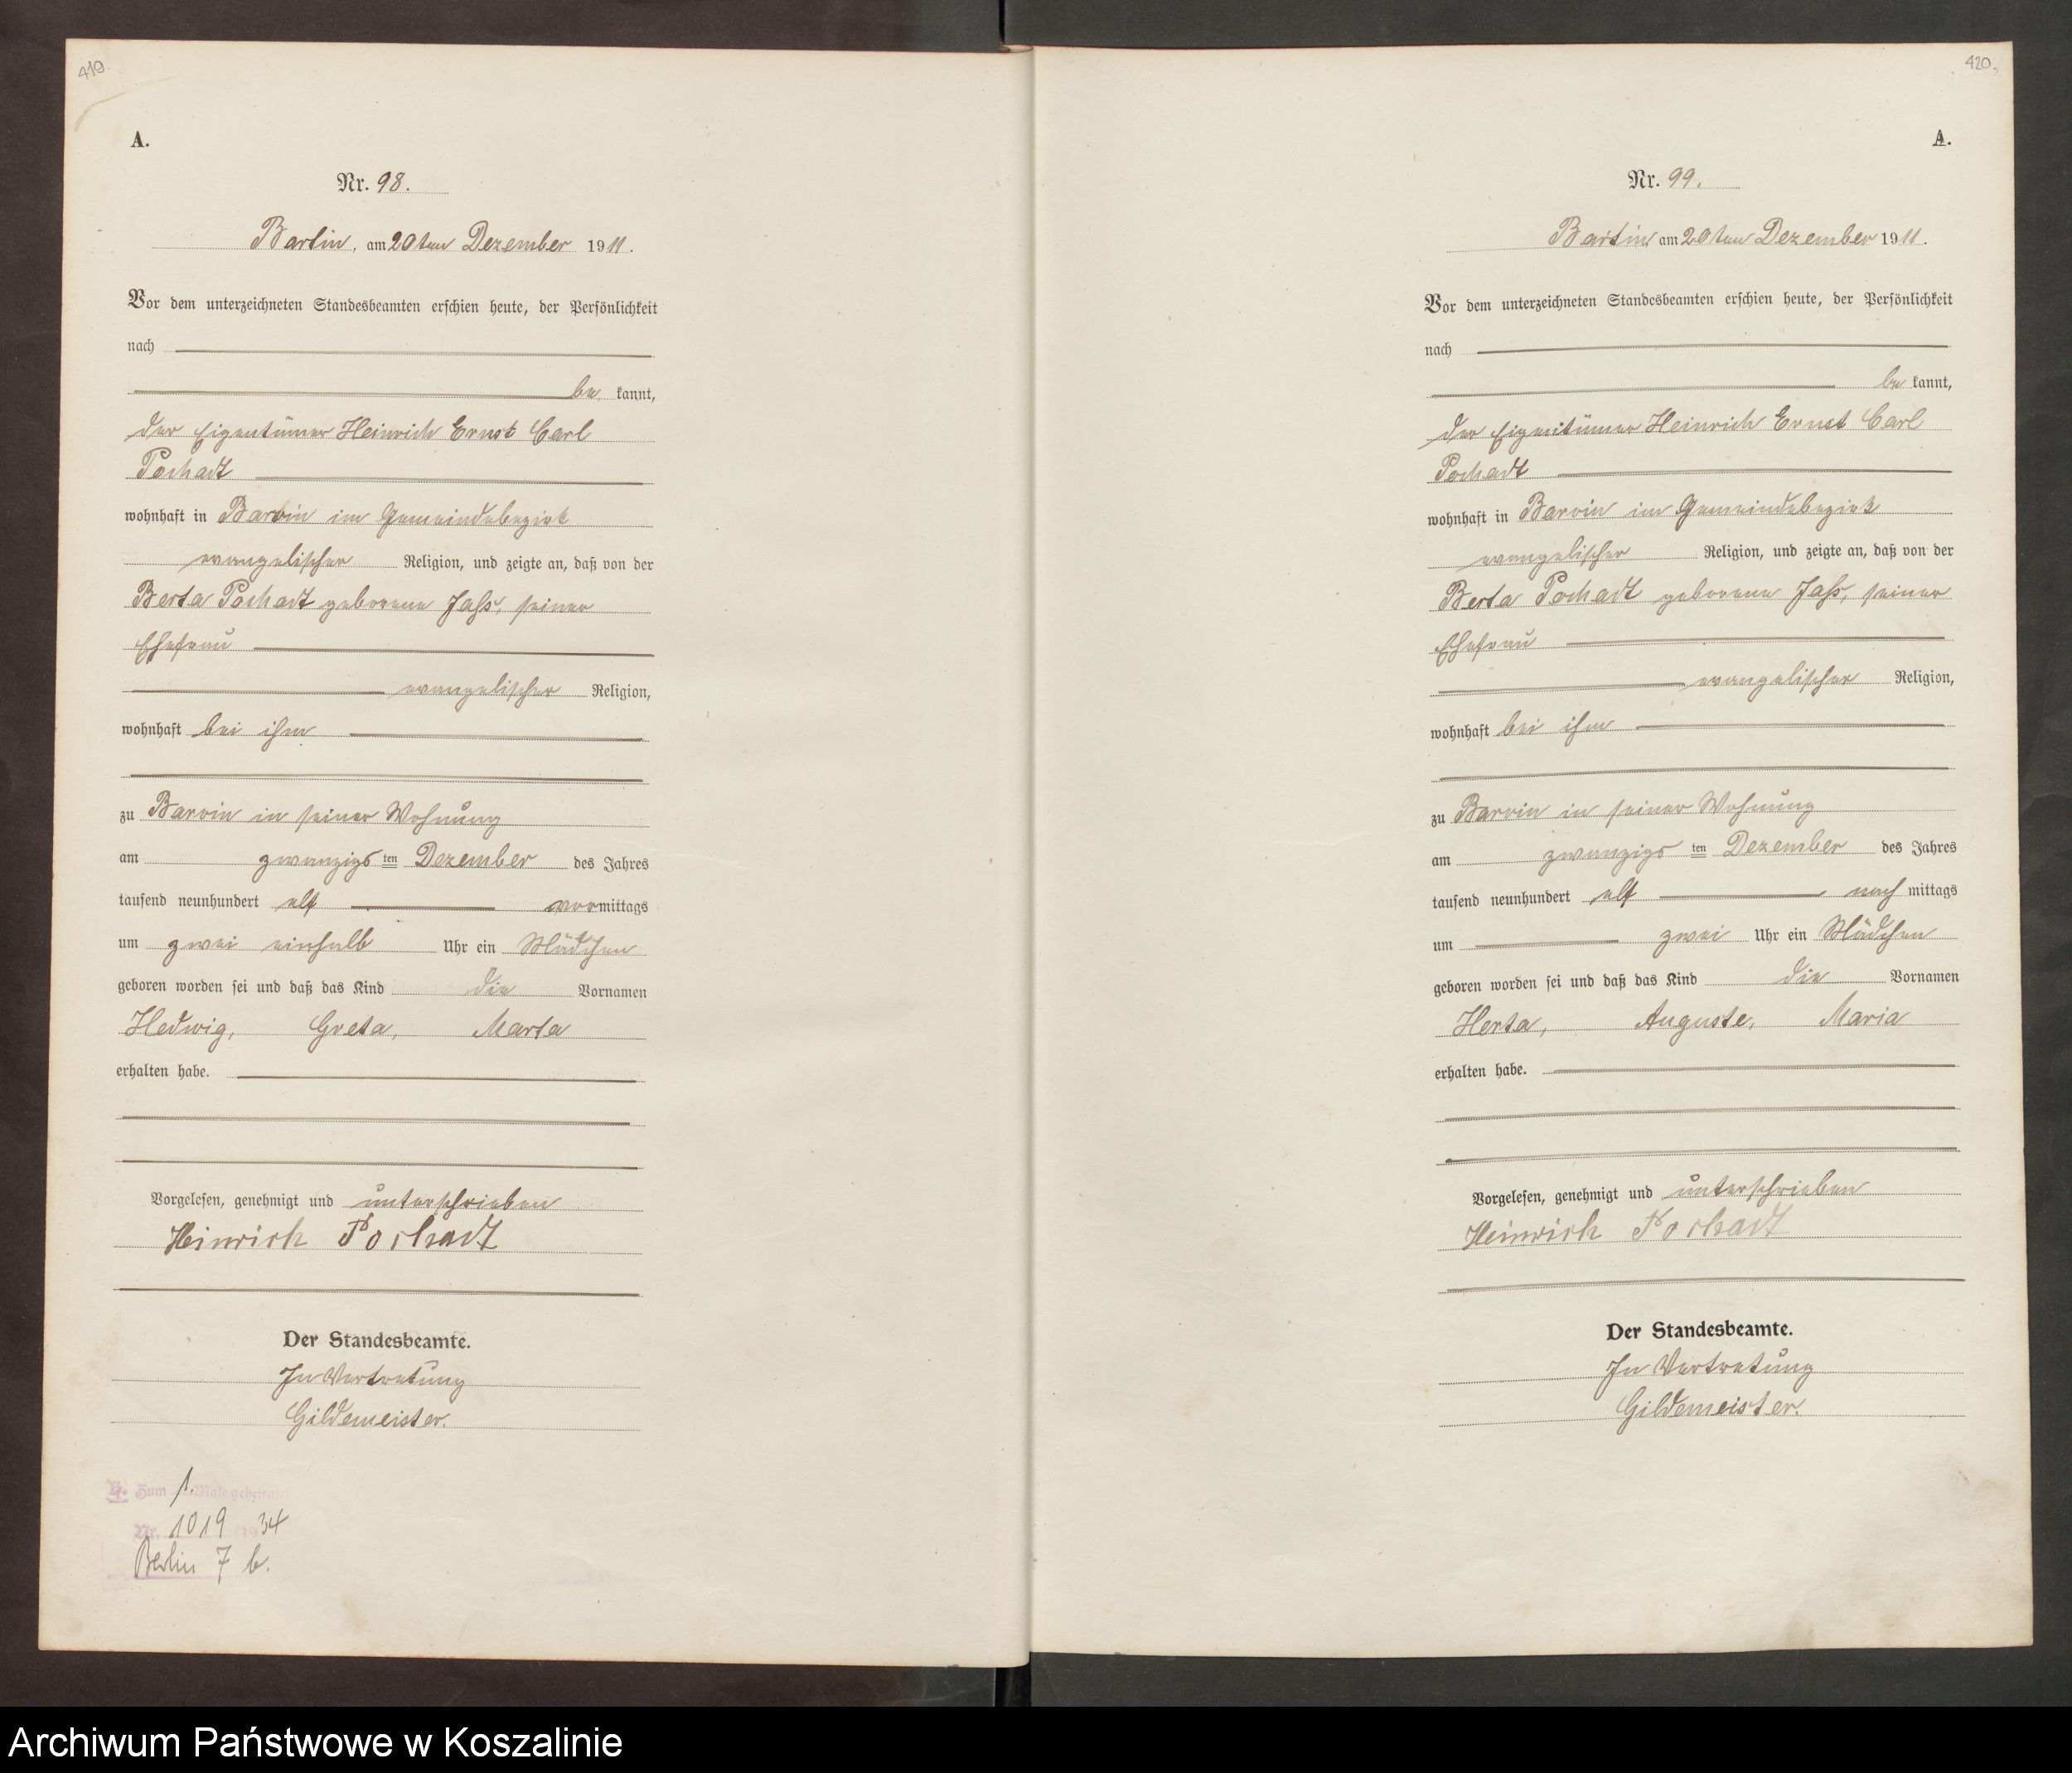 419.
A.
Nr. 98.
Bartin, am 20ten Dezember 1911.
Vor dem unterzeichneten Standesbeamten erschien heute, der Persönlichkeit
nach
be kannt,
der Eigentümer Heinrich Ernst Carl
Pochadt
wohnhaft in Barvin im Gemeindebezirk
evangelischer Religion, und zeigte an, daß von der
Berta Pochadt geborene Jahs, seiner
Ehefrau
evangelischer Religion,
wohnhaft bei ihm
zu Barvin in seiner Wohnung
am zwanzigs ten Dezember des Jahres
tausend neunhundert elf vormittags
um zwei einhalb Uhr ein Mädchen
geboren worden sei und daß das Kind die Vornamen
Hedwig, Greta, Marta
erhalten habe.
Vorgelesen, genehmigt und unterschrieben
Heinrich Pochadt
Der Standesbeamte.
In Vertretung
Gildemeister.
Zum 1. Male geheiratet
Nr. 1019 34
Berlin 7 b.
420.
A.
Nr. 99.
Bartin am 20ten Dezember 1911.
Vor dem unterzeichneten Standesbeamten erschien heute, der Persönlichkeit
nach
be kannt,
der Eigentümer Heinrich Ernst Carl
Pochadt
wohnhaft in Barvin im Gemeindebezirk
evangelischer Religion, und zeigte an, daß von der
Berta Pochadt geborene Jahs, seiner
Ehefrau
evangelischer Religion,
wohnhaft bei ihm
zu Barvin in seiner Wohnung
am zwanzigs ten Dezember des Jahres
tausend neunhundert elf nach mittags
um zwei Uhr ein Mädchen
geboren worden sei und daß das Kind die Vornamen
Herta, Auguste, Maria
erhalten habe.
Vorgelesen, genehmigt und unterschrieben
Heinrich Pochadt
Der Standesbeamte.
In Vertretung
Gildemeister.
Archiwum Państwowe w Koszalinie